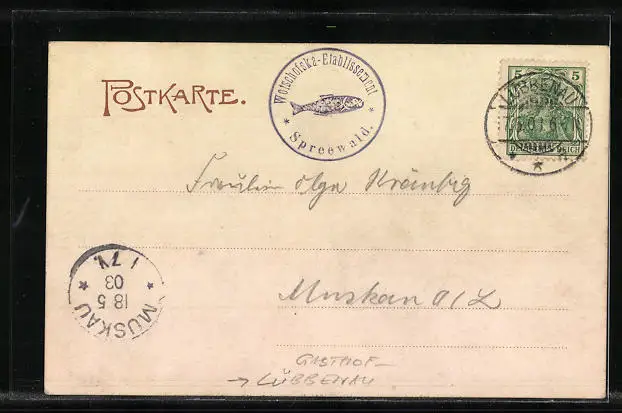 POSTKARTE.
Wotschofska-Etablissement
* Spreewald. *
5 5
LÜBBENAU
DEUTSCHES REICH
Fräulein Olga
Muskau O/L
MUSKAU
18 5
03
GASTHOF–
→ LÜBBENAU